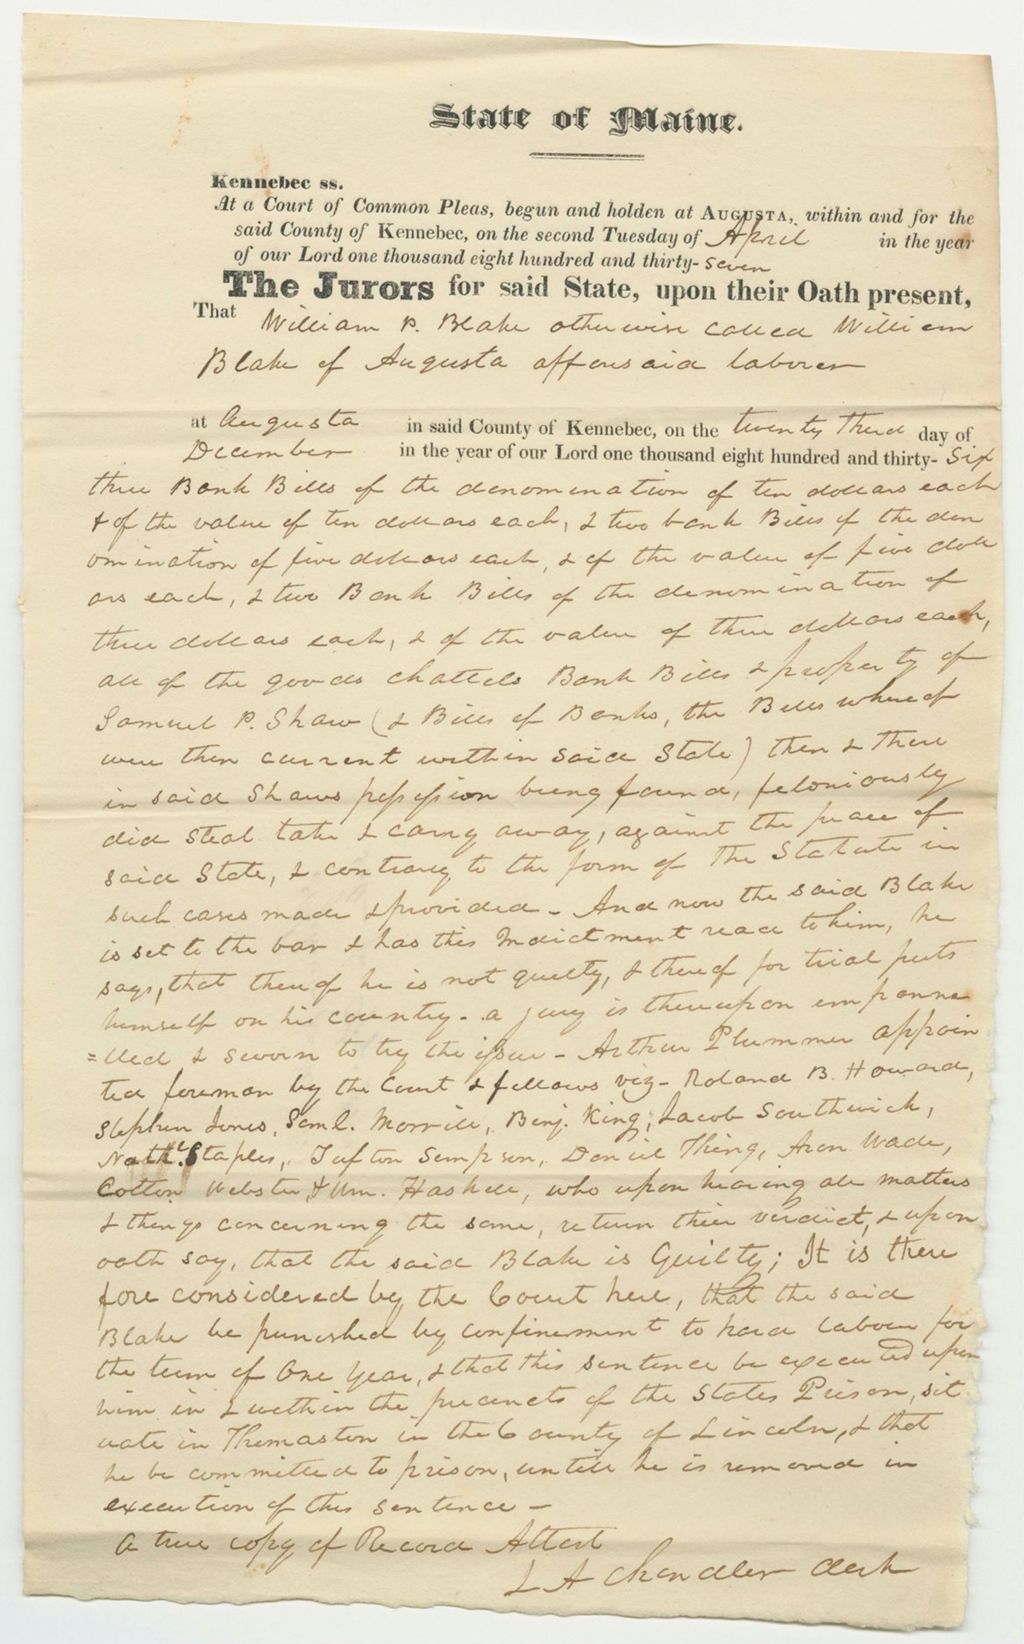 State of Maine.
Kennebec ss.
At a Court of Common Pleas, begun and holden at AUGUSTA, within and for the
said County of Kennebec, on the second Tuesday of April in the year
of our Lord one thousand eight hundred and thirty-seven
The Jurors for said State, upon their Oath present,
That William P. Blake otherwise called William
Blake of Augusta afforesaid laborer
at Augusta in said County of Kennebec, on the twenty third day of
December in the year of our Lord one thousand eight hundred and thirty-six
three Bank Bills of the denomination of ten dollars each
& of the value of ten dollars each, & two bank Bills of the den
omination of five dollars each, & of the value of five doll
ars each, & two Bank Bills of the denomination of
three dollars each, & of the value of three dollars each,
all of the goods chattels Bank Bills & property of
Samuel P. Shaw (& Bills of Banks, the Bills whereof
were then current within said State) then & there
in said Shaws possession being found, feloniously
did steal take & carry away, against the peace of
said State, & contrary to the form of the Statute in
such cases made & provided - And now the said Blake
is set to the bar & has this Indictment read to him, he
says, that thereof he is not guilty, & thereof for trial puts
himself on his country - a jury is thereupon impanne
=lled & sworn to try the issue - Arthur Plummer appoin
ted foreman by the Court & fellows viz - Roland B. Howard,
Stephen Jones, Saml. Morrill, Benj. King, Jacob Southwick,
Nathl. Staples, Tufton Simpson, Daniel Thing, Aron Wade,
Cotton Webster, & Wm. Haskell, who upon hearing all matters
& things concerning the same, return their verdict, & upon
oath say, that the said Blake is Guilty; It is there
fore considered by the Court here, that the said
Blake be punished by confinement to hard labour for
the term of One Year, & that this sentence be executed upon
him in & within the precincts of the States Prison, sit
uate in Thomaston in the County of Lincoln, & that
he be committed to prison, untill he is removed in
execution of this sentence -
A true copy of Record Attest
L A Chandler Clerk